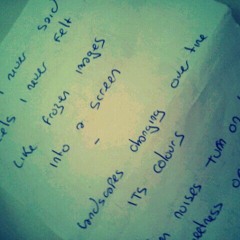 I never said
I never felt
Like frozen images
into a screen
-
landscapes changing over time
ITS colours
noises Turn on